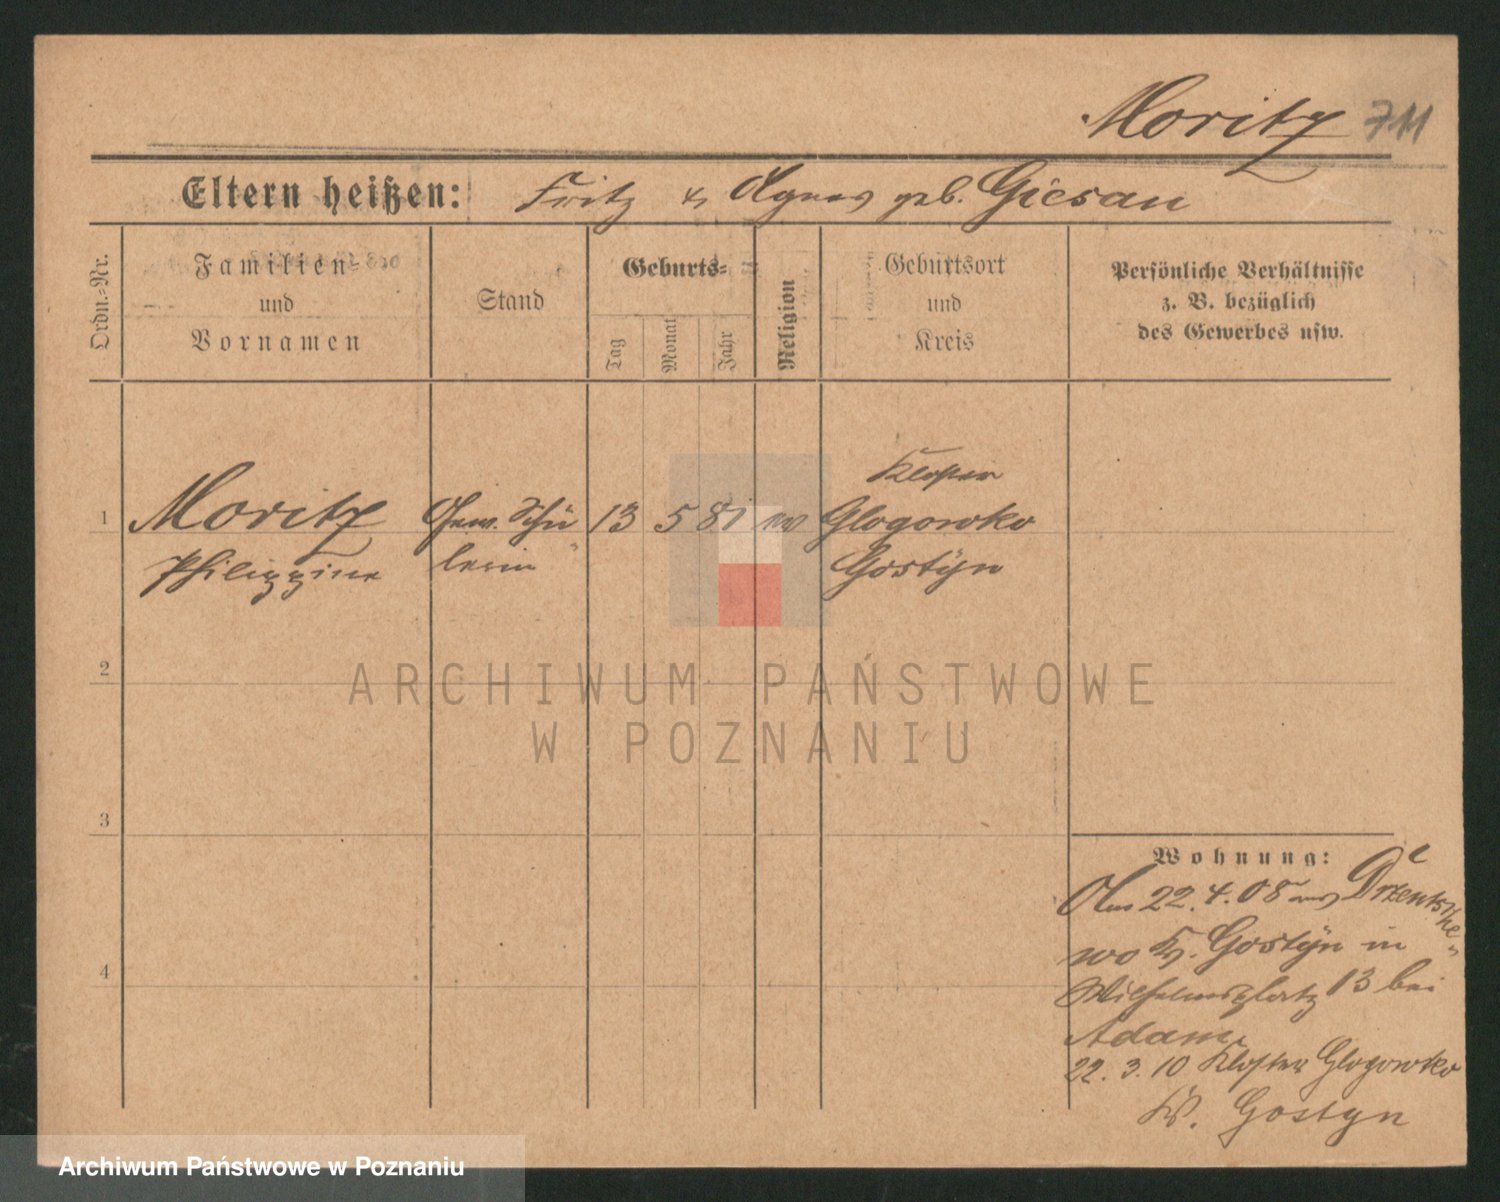 Moritz 711
Eltern heißen: Fritz & Agnes geb. Giesan
Ordn.-Nr.
Familien-
und
Vornamen
Stand
Geburts-
Tag
Monat
Jahr
Religion
Geburtsort
und
Kreis
Persönliche Verhältnisse
z. B. bezüglich
des Gewerbes usw.
Kloster
1 Moritz Gew. Schü 13 5 81 Glogowko
Philippine lerin Gostÿn
2
3
4
Wohnung:
Am 22.4.08 aus Drzentshe-
wo Kr. Gostÿn in
Wilhelmsplatz 13 bei
Adam.
22.3.10 Kloster Glogowko
Kr. Gostyn
ARCHIWUM PAŃSTWOWE
W POZNANIU
Archiwum Państwowe w Poznaniu